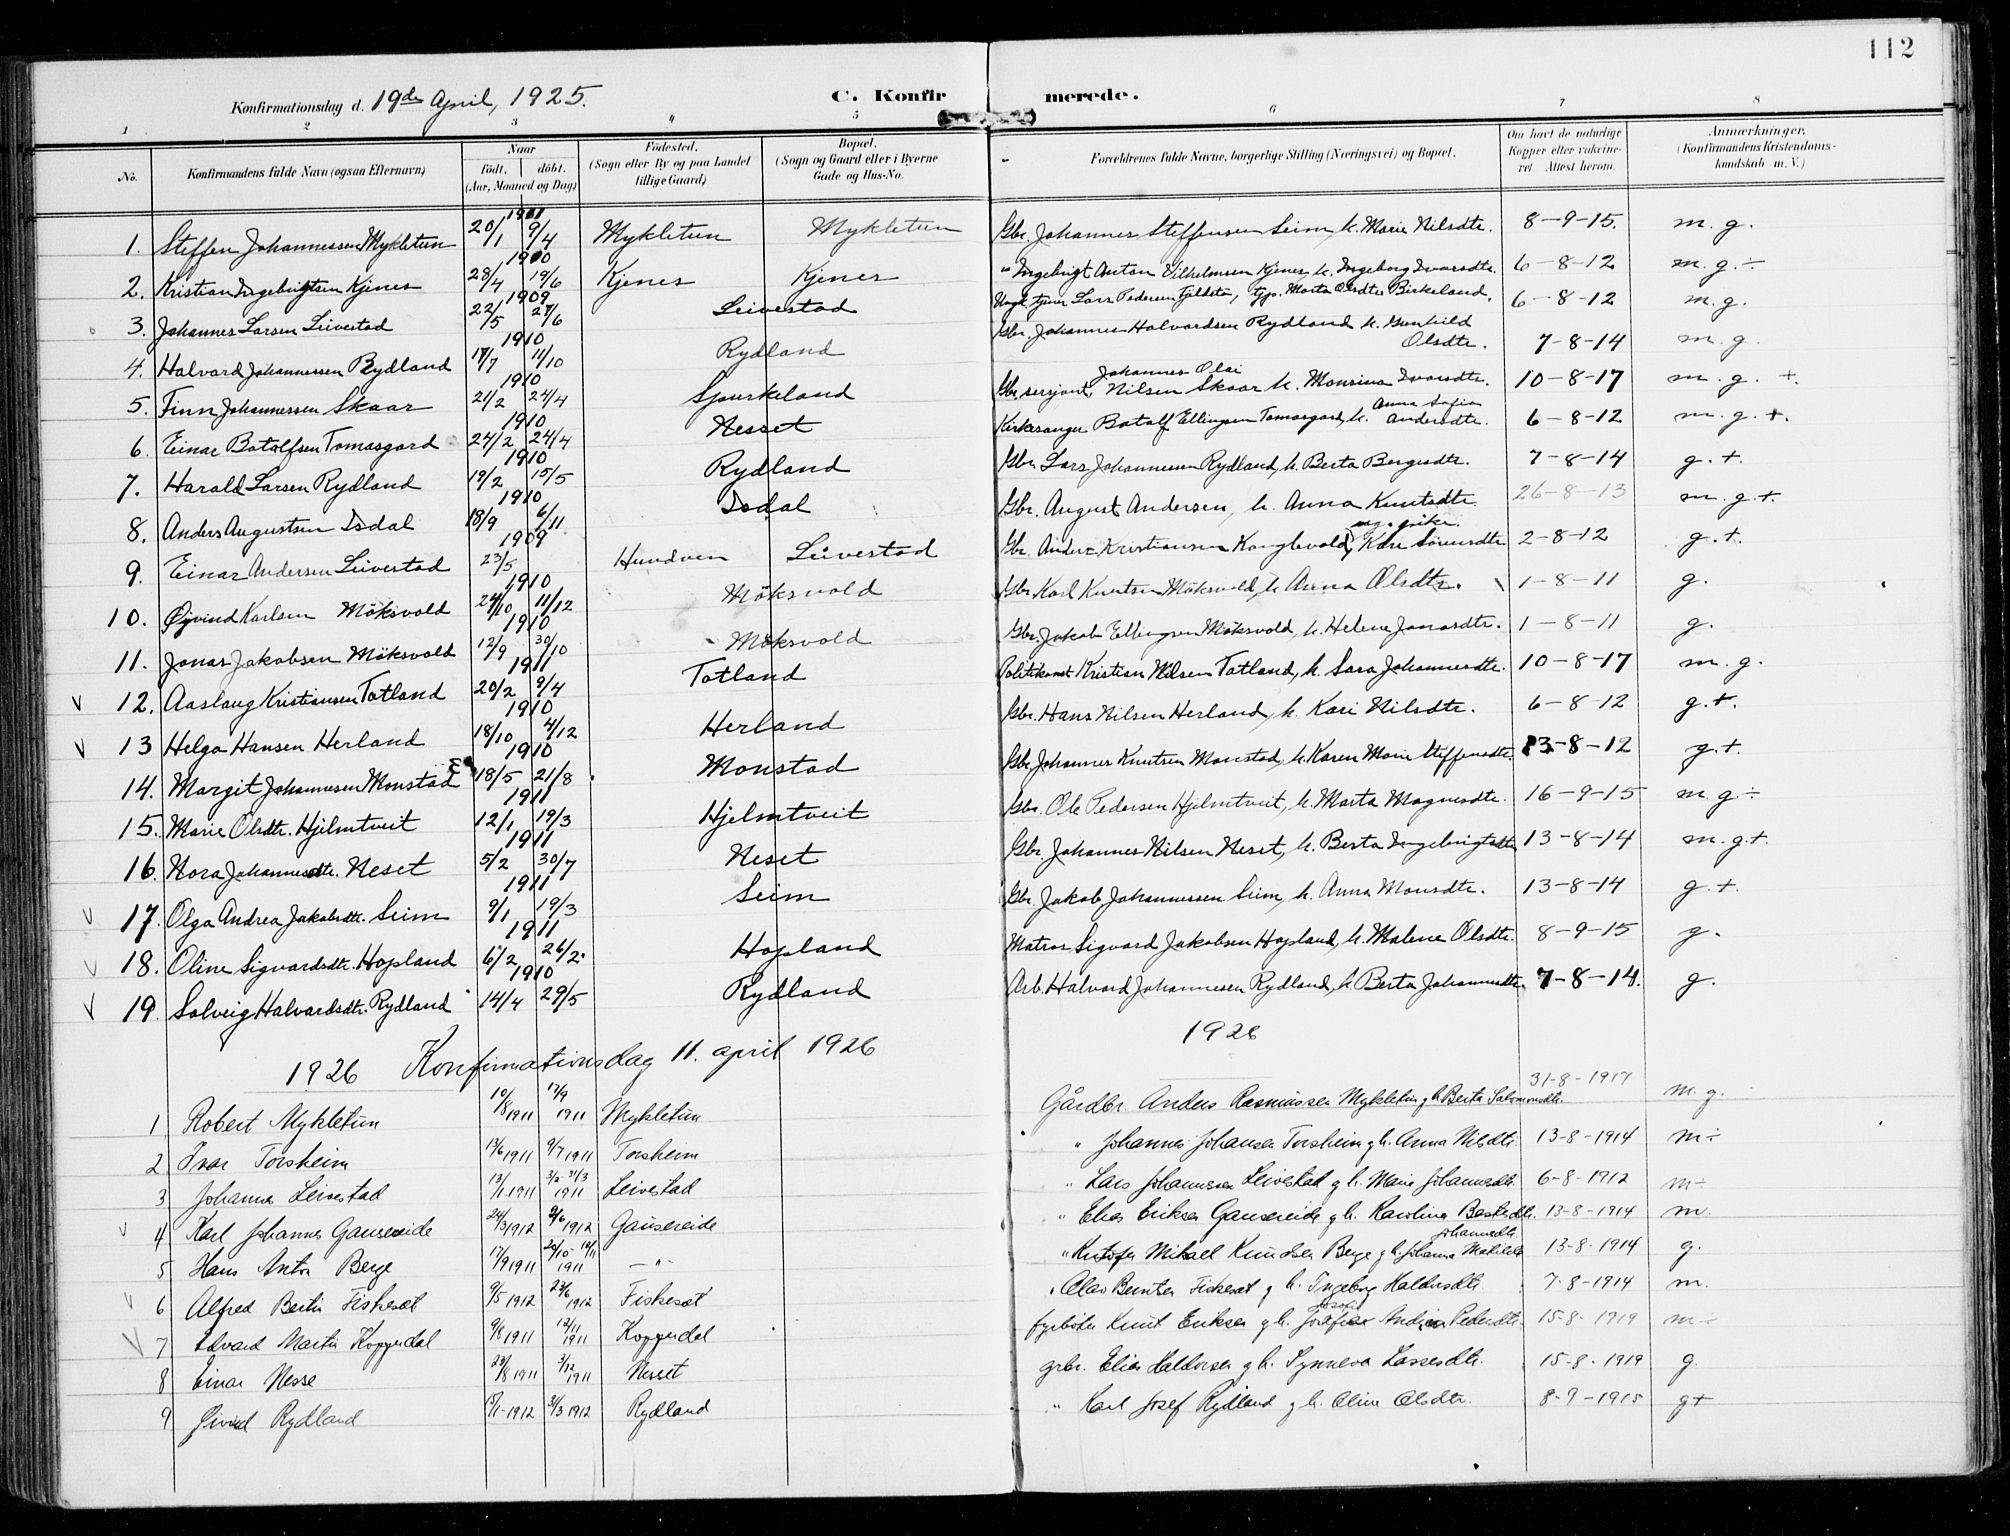 112
Konfirmationsdag d. 19de April, 1925. C. Konfirmerede.
1 2 3 " 5 6 7 8
No. Konfirmandens fulde Navn (ogsaa Efternavn) Naar Födt. döbt. (Aar, Maaned og Dag) Födested. (Sogn eller By og paa Landet tillige Gaard) Bopæl. (Sogn og Gaard eller i Byerne Gade og Hus-No. Forældrenes fulde Navne, borgerlige Stilling (Næringsvei) og Bopæl. Om havt de naturlige Kopper eller vaccineret Attest herom. Anmærkninger. (Konfirmandens Kristendomskundskab m. V.)
1. Steffen Johannessen Mykletun 20/1 1911 9/4 Mykletun Mykletun Gbr. Johannes Steffensen Seim, h. Marie Nilsdtr. 8-9-15. m. g.
2. Kristian Ingebrigtsen Kjenes 28/4 1910 19/6 Kjenes Kjenes " Ingebrigt Anton Vilhelmsen Kjenes, h. Ingeborg Ivarsdtr. 6-8-12 m. g. ÷
3. Johannes Larsen Leivestad 22/5 1909 27/6 Leivestad Lars Pedersen Marta Olsdtr Birkeland. 6-8-12 m. g.
4. Halvard Johannessen Rydland 17/7 1910 11/10 Rydland Gbr. Johannes Halvardsen Rydland h. Gunhild Olsdtr. 7-8-14 m. g.
5. Finn Johannessen Skaar 21/2 1910 24/4 Spurkeland Gbr. sersjant, Johannes Olai Nilsen Skaar h. Monsina Ivarsdtr. 10-8-17 m. g. +.
6. Einar Botolfsen Tomasgard 24/2 1910 24/4 Nesset Kirkesanger Botolf Ellingsen Tomasgard, h. Anna Sofia Andersdtr. 6-8-12 m. g. +.
7. Harald Larsen Rydland 19/2 1910 15/5 Rydland Gbr. Lars Johannessen Rydland, h. Berta Bergesdtr. 7-8-14 g. +.
8. Anders Augustsen Isdal 18/9 1910 6/11 Isdal Gbr. August Andersen, h. Anna Knutsdtr. 26-8-13 m. g +.
9. Einar Andersen Leivestad 23/5 1909 Hundven Leivestad Gbr. Anders Kristiansen Konglevold, ug. pike. Kari Sörensdtr 2-8-12 g. +.
10. Øyvind Karlsen Möksvold 24/10 1910 11/12 Möksvold Gbr. Karl Knutsen Möksvold, h. Anna Olsdtr. 1-8-11 g.
11. Jonas Jakobsen Möksvold 12/9 1910 30/10 Möksvold Gbr. Jakob Ellingsen Möksvold, h. Helene Jonasdtr. 1-8-11 g.
12. Aaslaug Kristiansen Totland 20/2 1911 9/4 Totland Politikonst Kristian Nilsen Totland, h. Sara Johannesdtr. 10-8-17 m. g.
13 Helga Hansen Herland 18/10 1910 4/12 Herland Gbr. Hans Nilsen Herland, h. Kari Nilsdtr. 6-8-12 g. +.
14. Margit Johannessen Monstad 18/5 1910 21/8 Monstad Gbr. Johannes Knutsen Monstad, h. Karen Marie Steffensdtr. 13-8-12 g. +.
15. Marie Olsdtr. Hjelmtveit 12/1 1911 19/3 Hjelmtveit Gbr. Ole Pedersen Hjelmtveit, h. Marta Magnesdtr. 16-9-15 m. g ÷
16. Nora Johannesdtr. Neset 5/2 1911 30/7 Neset Gbr. Johannes Nilsen Neset, h. Berta Ingebrigtsdtr. 13-8-14 m. g +.
17. Olga Andrea Jakobsdtr. Seim 9/1 1911 19/3 Seim Gbr. Jakob Johannessen Seim, h. Anna Monsdtr. 13-8-14 g. +.
18. Oline Sigvardsdtr. Hopland 6/2 1911 26/2. Hopland Matros Sigvard Jakobsen Hopland, h. Malene Olsdtr. 8-9-15 g.
19. Solveig Halvardsdtr. Rydland 14/4 1910 29/5 Rydland Arb. Halvard Johannessen Rydland, h. Berta Johannesdtr. 7-8-14. g.
1926 Konfirmationsdag 11. april 1926 1926
1 Robert Mykletun 10/8 1911 17/9 1911 Mykletun Gårdbr. Anders Rasmussen Mykletun g h. Berta Salomonsdtr. 31-8-1917 m. g.
2 Ivar Torsheim 13/6 1911 9/7 1911 Torsheim " Johannes Johansen Torsheim g h. Anna Nilsdtr. 13-8-1914 m ÷
3 Johannes Leivestad 13/1 1911 3/2 31/3 1911 Leivestad " Lars Johannesen Leivestad g h. Marie Johannesdtr. 6-8-1912 m ÷
4 Karl Johannes Gausereide 24/3 1912 9/6 1912 Gausereide " Elias Eriksen Gausereide g h. Karoline 13-8-1914 m.
5 Hans Anton Berge 17/9 1911 29/10 12/11 1911 — " — " Kristofer Mikael Knudsen Berge g h. Johanna Matilde Johannesdtr. 13-8-1914 g.
6 Alfred Bertin Fiskeset 9/5 1912 23/6 1912 Fiskeset " Olav Berntsen Fiskeset g h. Ingeborg Haldorsdtr. 7-8-1914 m.
7 Edvard Martin Koppendal 9/8 1911 12/11 1911 Koppendal fyrbøter Knut Eriksen g h. Andrea Pedersdtr. 15-8-1919 m ÷
8 Einar Nesse 23/8 1911 3/12 1911 Nesset grbr. Elias Haldorsen g h. Synneva Lassesdtr. 15-8-1919 g.
9 Øivind Rydland 15/1-1912 31/3 1912 Rydland " Karl Josef Rydland g h. Oline Olsdtr. 8-9-1915 g +